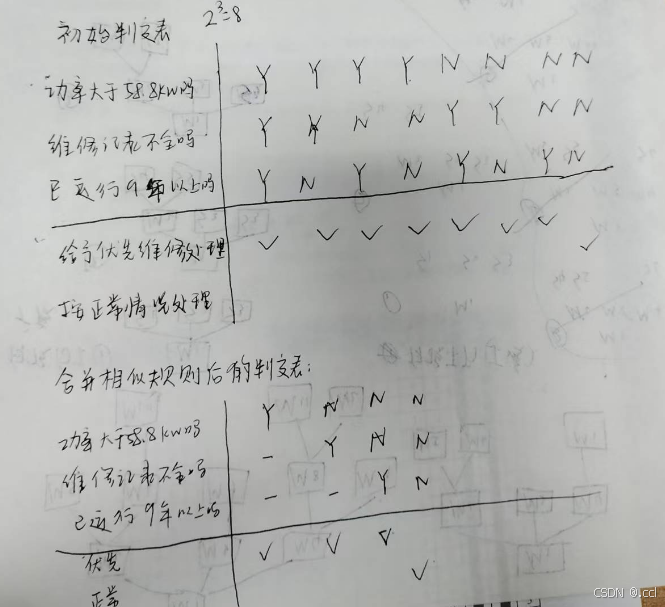 初始判定表 2³=8
功率大于58.8KW吗 Y Y Y Y N N N N
维修记录不全吗 Y Y N N Y Y N N
已运行9年以上吗 Y N Y N Y N Y N
给予优先维修处理 ✓ ✓ ✓ ✓ ✓ ✓ ✓
按正常情况处理 ✓
合并相似规则后的判定表:
功率大于58.8KW吗 Y N N N
维修记录不全吗 - Y N N
已运行9年以上吗 - - Y N
优先 ✓ ✓ ✓
正常 ✓
CSDN @.ccl